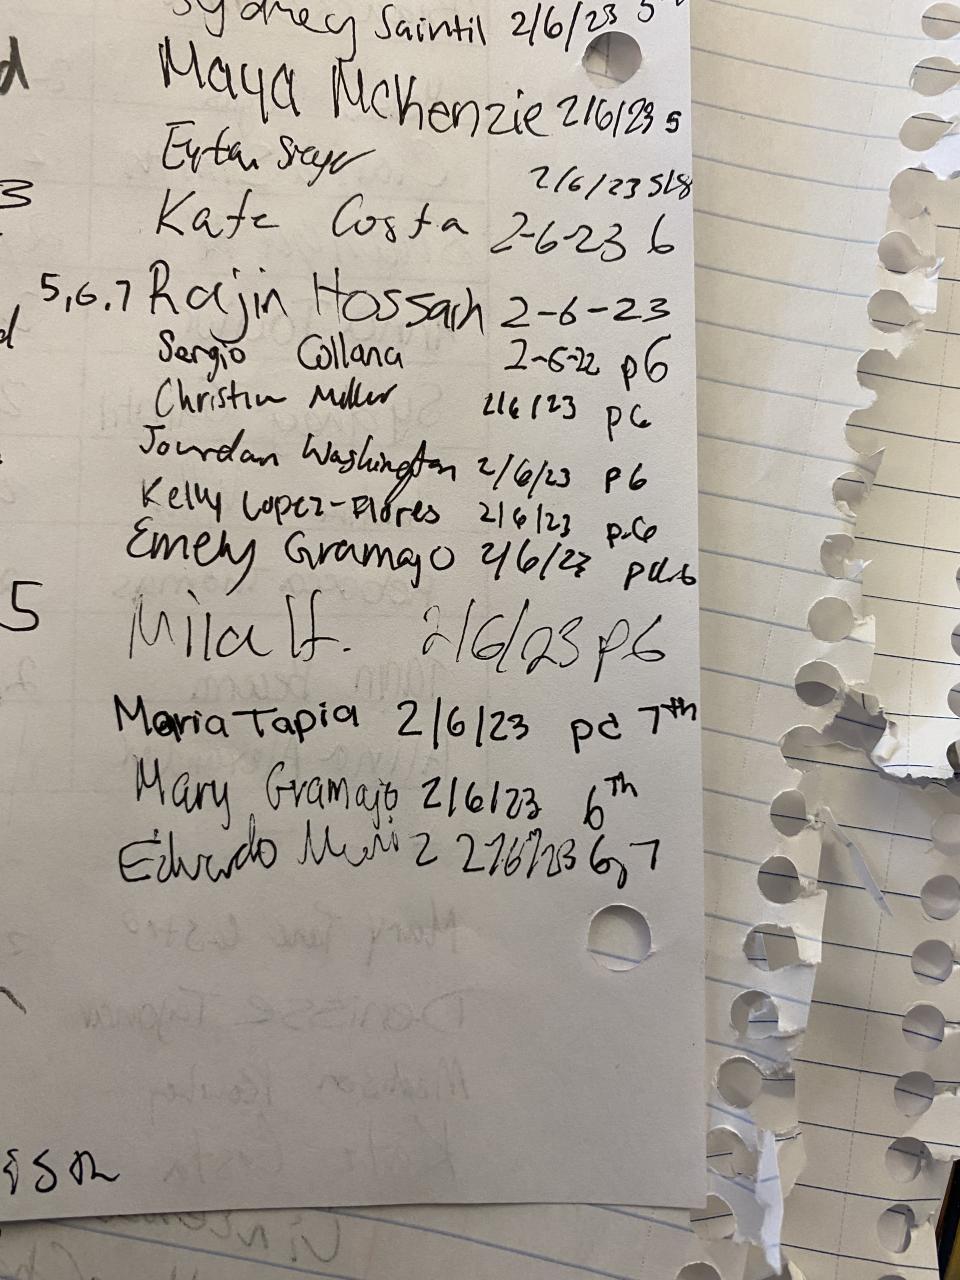 Sydney Saintil 2/6/23 5th
Maya McKenzie 2/6/23 5
Eytan 2/6/23 5&8
Kate Costa 2-6-23 6
5,6,7 Rajin Hossain 2-6-23
Sergio Collana 2-6-22 p6
Christian Miller 2/6/23 p6
Jourdan Washington 2/6/23 P6
Kelly Lopez-Flores 2/6/23 p.6
Emely Gramajo 2/6/23 pd.6
Mila H. 2/6/23 p6
Maria Tapia 2/6/23 pd 7th
Mary Gramajo 2/6/23 6Th
Eduardo 2/6/23 6,7
5